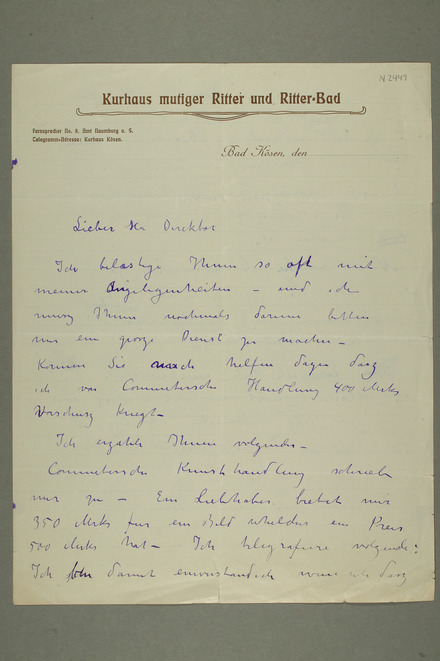 N 2449
Kurhaus mutiger Ritter und Ritter-Bad
Fernsprecher No. 8. Amt Naumburg a. S.
Telegramm-Adresse: Kurhaus Kösen.
Bad Kösen, den
Lieber Hr Direktor
Ich belästige Ihnen so oft mit
meiner Angelegenheiten – und ich
musz Ihnen nochmals darum bitten
mir ein grosze Dienst zu machen –
Konnen Sie helfen dasz
ich von Commeterische Handlung 400 Marks
Vorschusz kriegt –
Ich erzähle Ihnen volgendes –
Commetersche Kunsthandlung schrieb
mir zu – Ein Liebhaber bietet mir
350 Marks für ein Bild welches ein Preis
500 Marks hat – Ich telegrafiere volgende:
Ich bin damit einverstanden wenn ich dasz